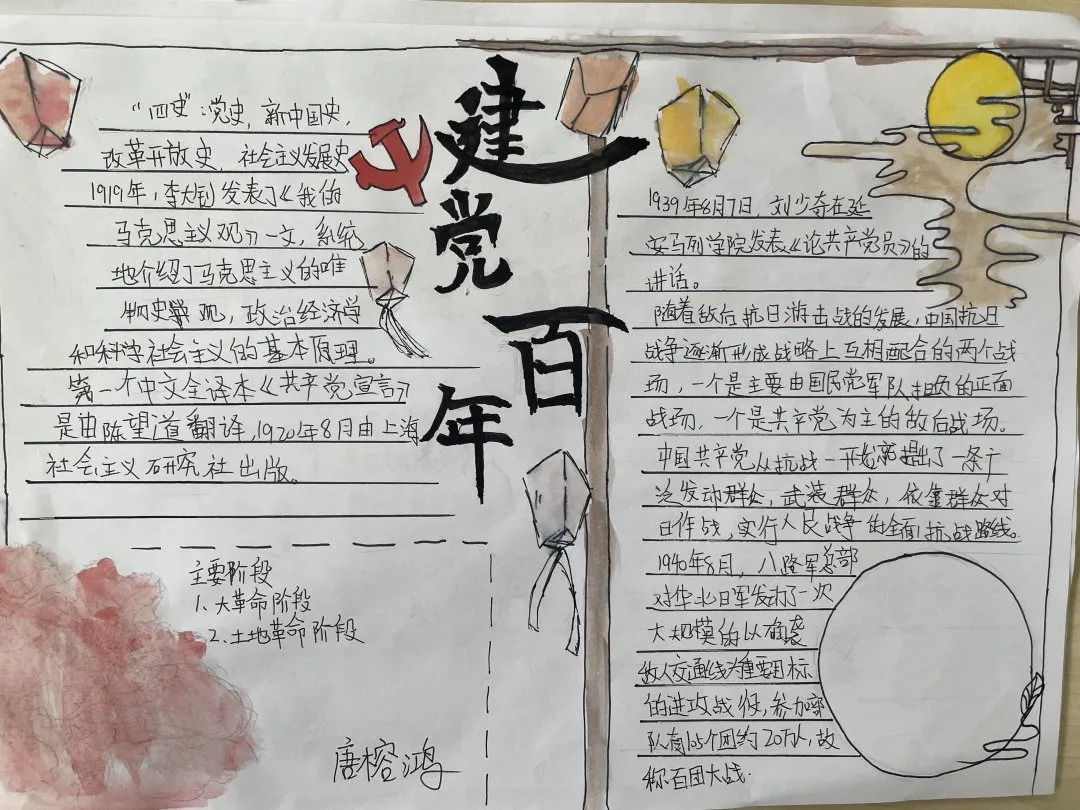 建党百年
“四史”：党史，新中国史，
改革开放史，社会主义发展史
1919年，李大钊发表了《我的
马克思主义观》一文，系统
地介绍了马克思主义的唯
物史观，政治经济学
和科学社会主义的基本原理。
第一个中文全译本《共产党宣言》
是由陈望道翻译，1920年8月由上海
社会主义研究社出版。
主要阶段
1、大革命阶段
2、土地革命阶段
唐榕鸿
1939年8月7日，刘少奇在延
安马列学院发表《论共产党员》的
讲话。
随着敌后抗日游击战的发展，中国抗日
战争逐渐形成战略上互相配合的两个战
场，一个是主要由国民党军队担负的正面
战场，一个是共产党为主的敌后战场。
中国共产党从抗战一开始就提出了一条广
泛发动群众，武装群众，依靠群众对
日作战，实行人民战争的全面抗战路线。
1940年8月，八路军总部
对华北日军发动了一次
大规模的以破袭
敌人交通线为重要目标
的进攻战役，参加部
队有105个团约20万人，故
称百团大战.